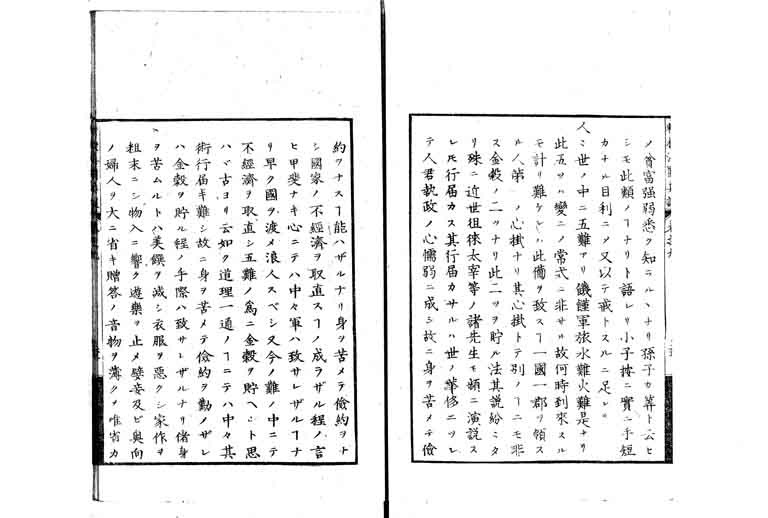 ノ貧富强弱悉ク知ラルヽナリ孫子カ算ト云ヒ
シモ此類ノヿナリト語レリ小子按ニ實ニ手短
カナル目利ニ〆又以テ戒トスルニ足レリ
人ニ世ノ中ニ五難アリ饑饉軍旅水難火難是ナリ
此五ツハ變ニ〆常式ニ非サル故何時到來スル
モ計リ難ケレハ此備ヲ致スヿ一國一郡ヲ領ス
ル人第一ノ心掛ナリ其心掛トテ別ノヿニモ非
ス金穀ノ二ツナリ此二ツヲ貯ル法其說紛々タ
リ殊ニ近世徂徠太宰等ノ諸先生モ頻ニ演說ス
レ𪜈行届カス其行届カサルハ世ノ華修ニツレ
テ人君執政ノ心懦弱ニ成シ故ニ身ヲ苦メテ儉
約ヲナスヿ能ハザルナリ身ヲ苦メテ儉約ヲナ
シ國家ノ不經濟ヲ取直スヿノ成ラザル程ノ言
ヒ甲斐ナキ心ニテハ中々軍ハ致サレザルヿナ
リ早ク國ヲ渡メ浪人スベシ又今ノ難ノ中ニテ
不經濟ヲ取直シ五難ノ爲ニ金穀ヲ貯ヘント思
ハヾ古ヨリ云如ク道理一通ノヿニテハ中々其
術行届キ難シ故ニ身ヲ苦メテ儉約ヲ勤ノザレ
ハ金穀ヲ貯ル程ノ手際ハ致サレザルナリ偖身
ヲ苦ムルトハ美饌ヲ減シ衣服ヲ惡クシ家作ヲ
粗末ニシ物入ニ響ク遊樂ヲ止メ嬖妾及ビ奥向
ノ婦人ヲ大ニ省キ贈答ノ音物ヲ薄ク〆唯省カ